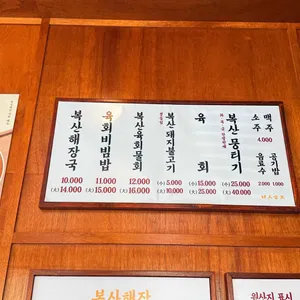 복산해장국
10.000
(大) 14.000
육회비빔밥
11.000
(大) 15.000
복산육회물회
12.000
(大) 16.000
복산돼지불고기
(小) 5.000
(大) 10.000
육회
(小) 15.000
(大) 25.000
복산뭉티기
(小) 25.000
(大) 40.000
소주
맥주
4.000
음료수
2.000
공기밥
1.000
복산해장
원산지 표시